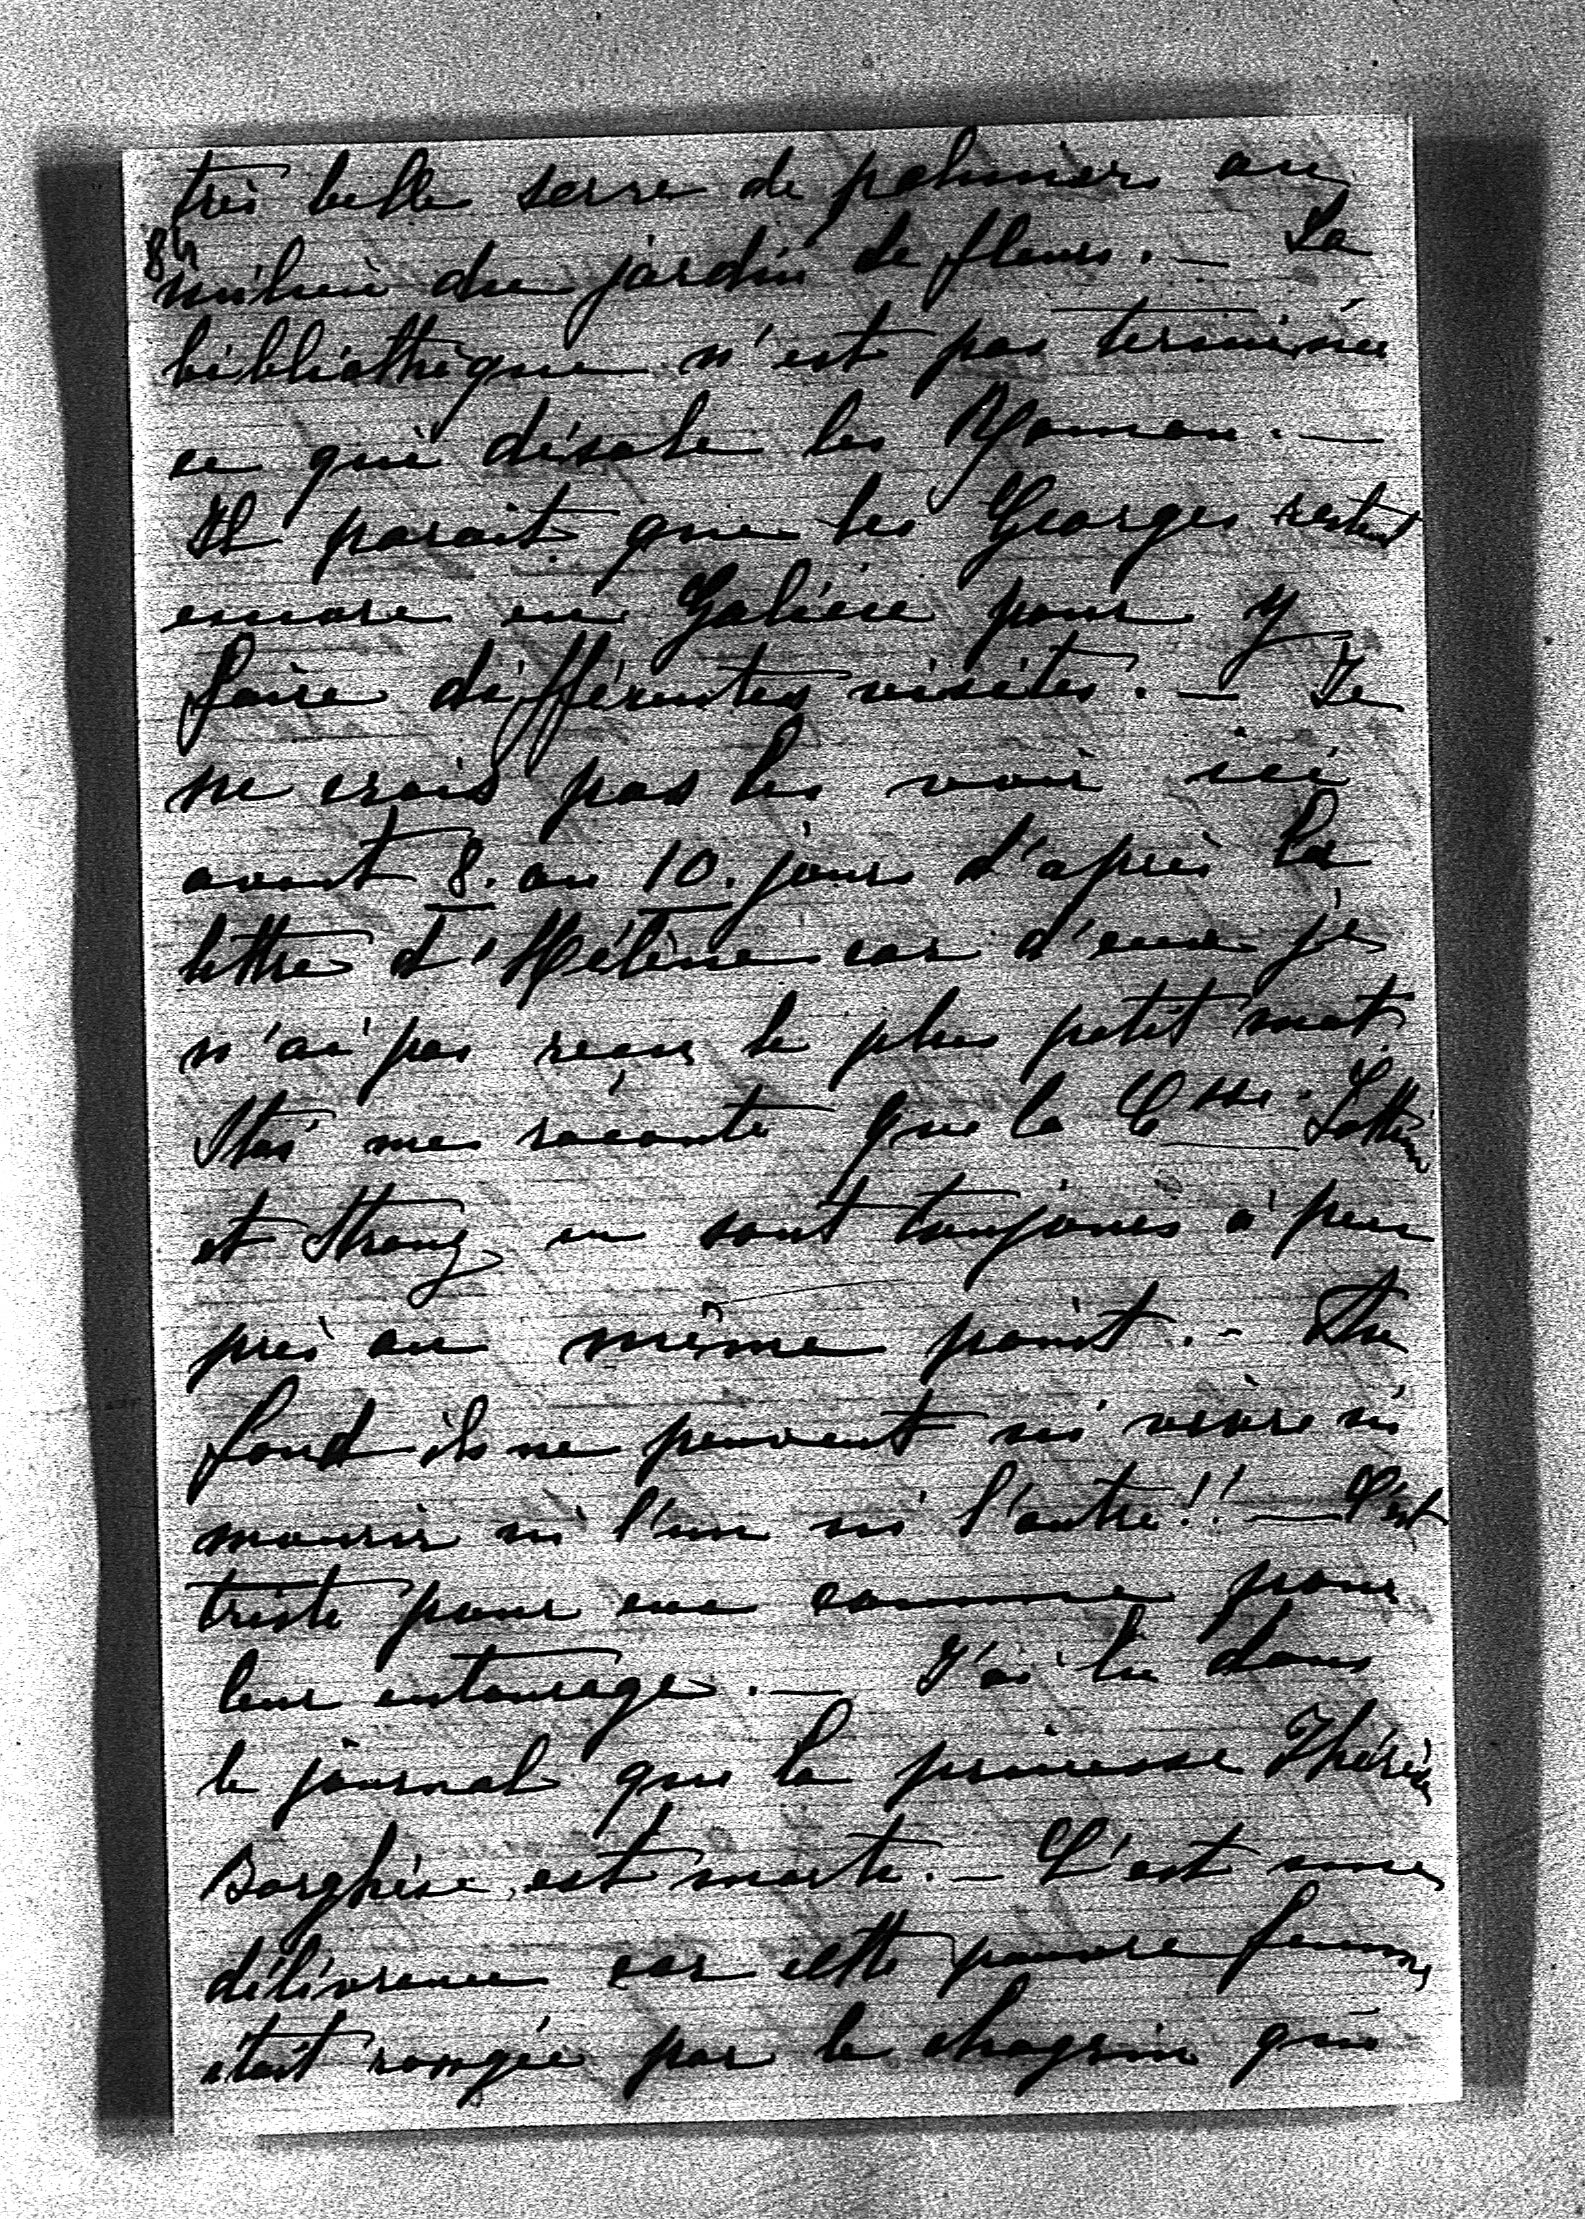 très belle serre de palmiers au
84
milieu du jardin de fleurs. — La
bibliothèque n'est pas terminée
ce qui désole les Roman. —
Il parait que les Georges restent
encore en Galicie pour y
faire différentes visites. — Je
ne crois pas les voir ici
avant 8. ou 10. jours d'après la
lettre d'Hélène car d'eux je
n'ai pas reçu le plus petit mot.
Stas me raconte que la Csse.
et Strong en sont toujours à peu
près au même point. - Au
fond ils ne peuvent ni vivre ni
mourir ni l'un ni l'autre!! — C'est
triste pour eux comme pour
leur entourage. — J'ai lu dans
le journal que la princesse Thérèse
Borghèse est morte. — C'est une
délivrance car cette pauvre femme
était rongée par le chagrin qui